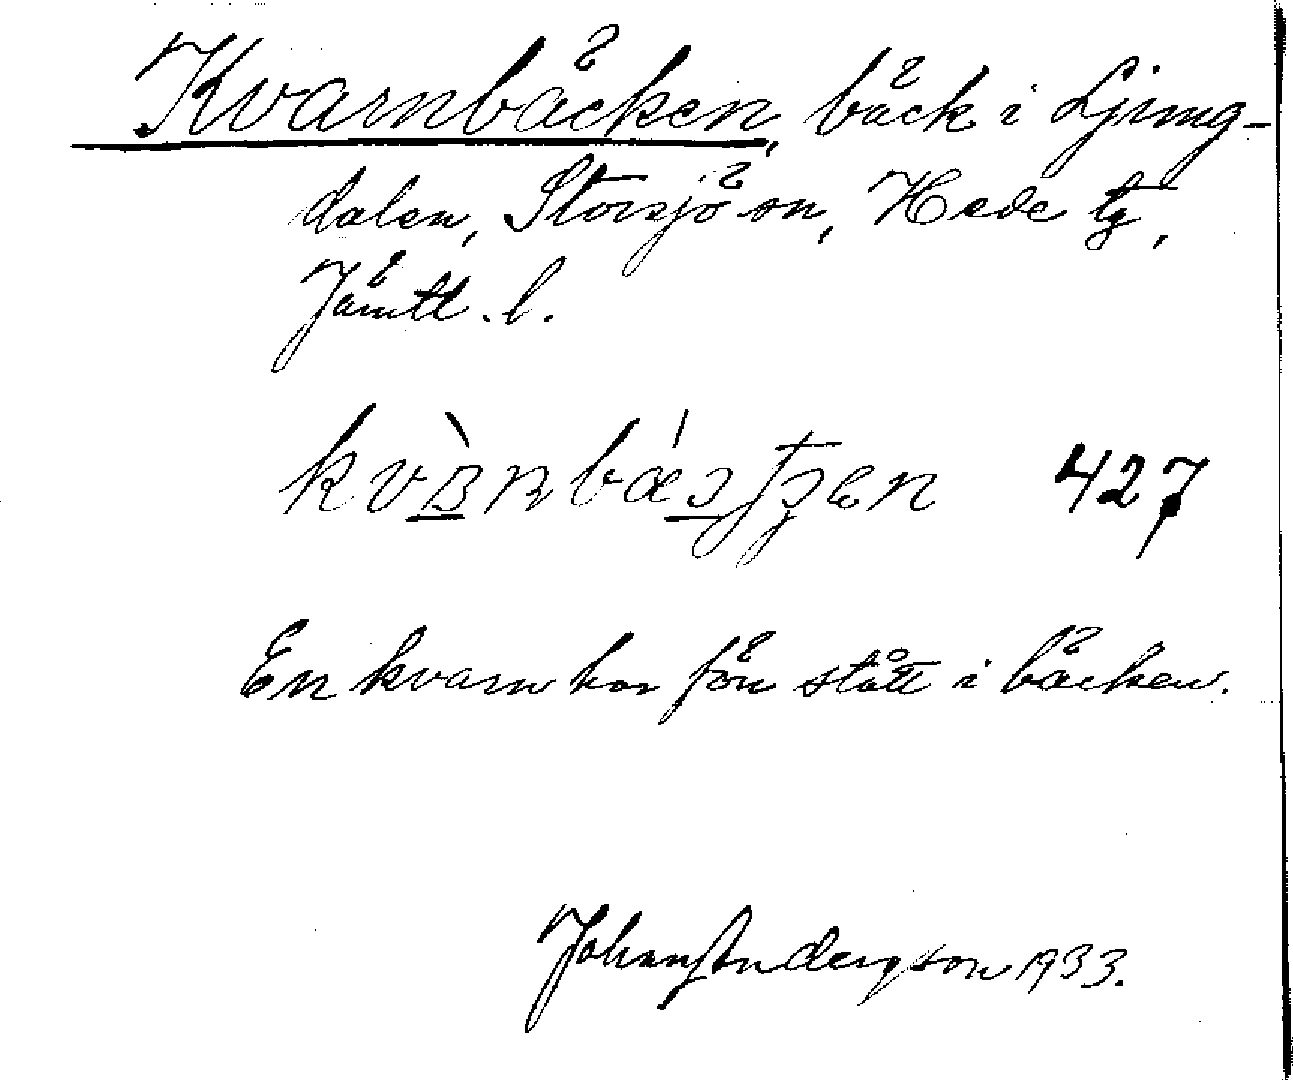 Kvarnbäcken, bäck i Ljung-
dalen, Storsjö sn, Hede tg,
Jämtl. l.
427
En kvarn har förr stått i bäcken.
Johan Andersson 1933.